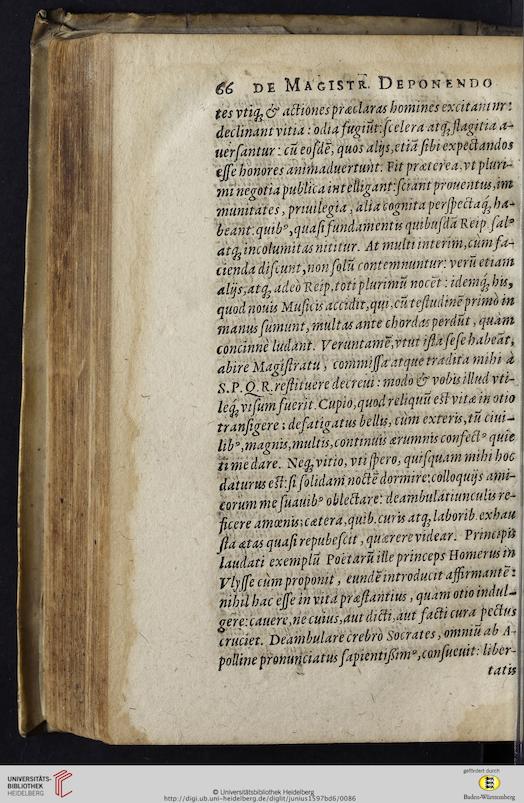 66 DE MAGISTR. DEPONENDO
tes vtiq́; & actiones præclaras homines excitantur:
declinant vitia: odia fugiũt: scelera atq́; flagitia a-
uersantur: cũ eosdẽ, quos alijs, etiã sibi expectandos
esse honores animaduertunt. Fit præterea, vt pluri-
mi negotia publica intelligant: sciant prouentus, im
munitates, priuilegia, alia cognita perspectaq́; ha-
beant: quibꝰ, quasi fundamentis quibusdã Reip. salꝰ
atq́; incolumitas nititur. At multi interim, cùm fa-
cienda discunt, non solũ contemnuntur: verũ etiam
alijs, atq́; adeò Reip. toti plurimũ nocet: idemq́; his,
quod nouis Musicis accidit, qui, cũ testudinẽ primò in
manus sumunt, multas ante chordas perdũt, quàm
concinnè ludant. Veruntamẽ, vtut ista sese habeãt,
abire Magistratu, commissa atque tradita mihi à
S.P.Q.R. restituere decreui: modo & vobis illud vti-
leq́; visum fuerit. Cupio, quod reliquũ est vitæ in otio
transigere; defatigatus bellis, cùm exteris, tũ ciui-
libꝰ, magnis, multis, continuis ærumnis confectꝰ quie
ti me dare. Neq́; vitio, vti spero, quisquam mihi hoc
daturus est: si solidam noctẽ dormire: colloquijs ami-
corum me suauibꝰ oblectare: deambulatiunculis re-
ficere amœnis; cætera, quib. curis atq́; laborib. exhau
sta ætas quasi repubescit, quærere videar. Principis
laudati exemplũ Poëtarũ ille princeps Homerus in
Vlysse cùm proponit, eundẽ introducit affirmantẽ:
nihil hac esse in vita præstantius, quàm otio indul-
gere: cauere, ne cuius, aut dicti, aut facti cura pectus
cruciet. Deambulare crebrò Socrates, omniũ ab A-
polline pronunciatus sapientißimꝰ, consueuit: liber-
tatis
UNIVERSITÄTS-
BIBLIOTHEK
HEIDELBERG
© Universitätsbibliothek Heidelberg
http://digi.ub.uni-heidelberg.de/diglit/junius1597bd6/0086
gefördert durch
Baden-Württemberg